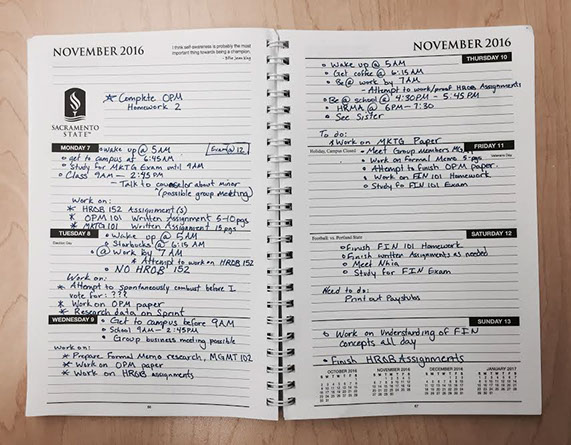 NOVEMBER 2016
I think self-awareness is probably the most
important thing towards being a champion.
- Billie Jean King
* Complete OPM
Homework 2
SACRAMENTO
STATE
MONDAY 7
Wake up @ 5AM
Exam @ 12
get to campus at 6:45AM
Study for MKTG Exam until 9AM
Class 9AM - 2:45PM
- Talk to counselor about minor
(possible group meeting)
Work on:
* HROB 152 Assignment(s)
* OPM 101 Written Assignment 5-10pgs
* MKTG 101 Written Assignment 15 pgs
TUESDAY 8
Wake up @ 5AM
Election Day
Starbucks @ 6:15 AM
@ Work by 7AM
* Attempt to work on HROB 152
NO HROB 152
Work on:
* Attempt to spontaneously combust before I
vote for: ???
* Work on OPM paper
* Research data on Sprint
WEDNESDAY 9
Get to campus before 9AM
School 9AM - 2:45PM
Group business meeting possible
Work on:
* Prepare Formal Memo research, MGMT 102
* Work on OPM paper
* Work on HROB assignments
NOVEMBER 2016
THURSDAY 10
Wake up @ 5AM
Get coffee @ 6:15AM
Be @ work by 7AM
- Attempt to work/proof HROB Assignments
Be @ school @ 4:30PM - 5:45PM
HRMA @ 6PM - 7:30
See Sister
To do:
* Work on MKTG Paper
FRIDAY 11
Holiday, Campus Closed
Veterans Day
Meet Group Members
Work on Formal Memo 5 pgs
Attempt to finish OPM paper
Work on FIN 101 Homework
Study for FIN 101 Exam
SATURDAY 12
Football vs. Portland State
Finish FIN 101 Homework
Finish written Assignments as needed
Meet Nhia
Study for FIN Exam
Need to do:
Print out Paystubs
SUNDAY 13
Work on Understanding of FIN
concepts all day
Finish HROB Assignments
OCTOBER 2016
NOVEMBER 2016
DECEMBER 2016
JANUARY 2017